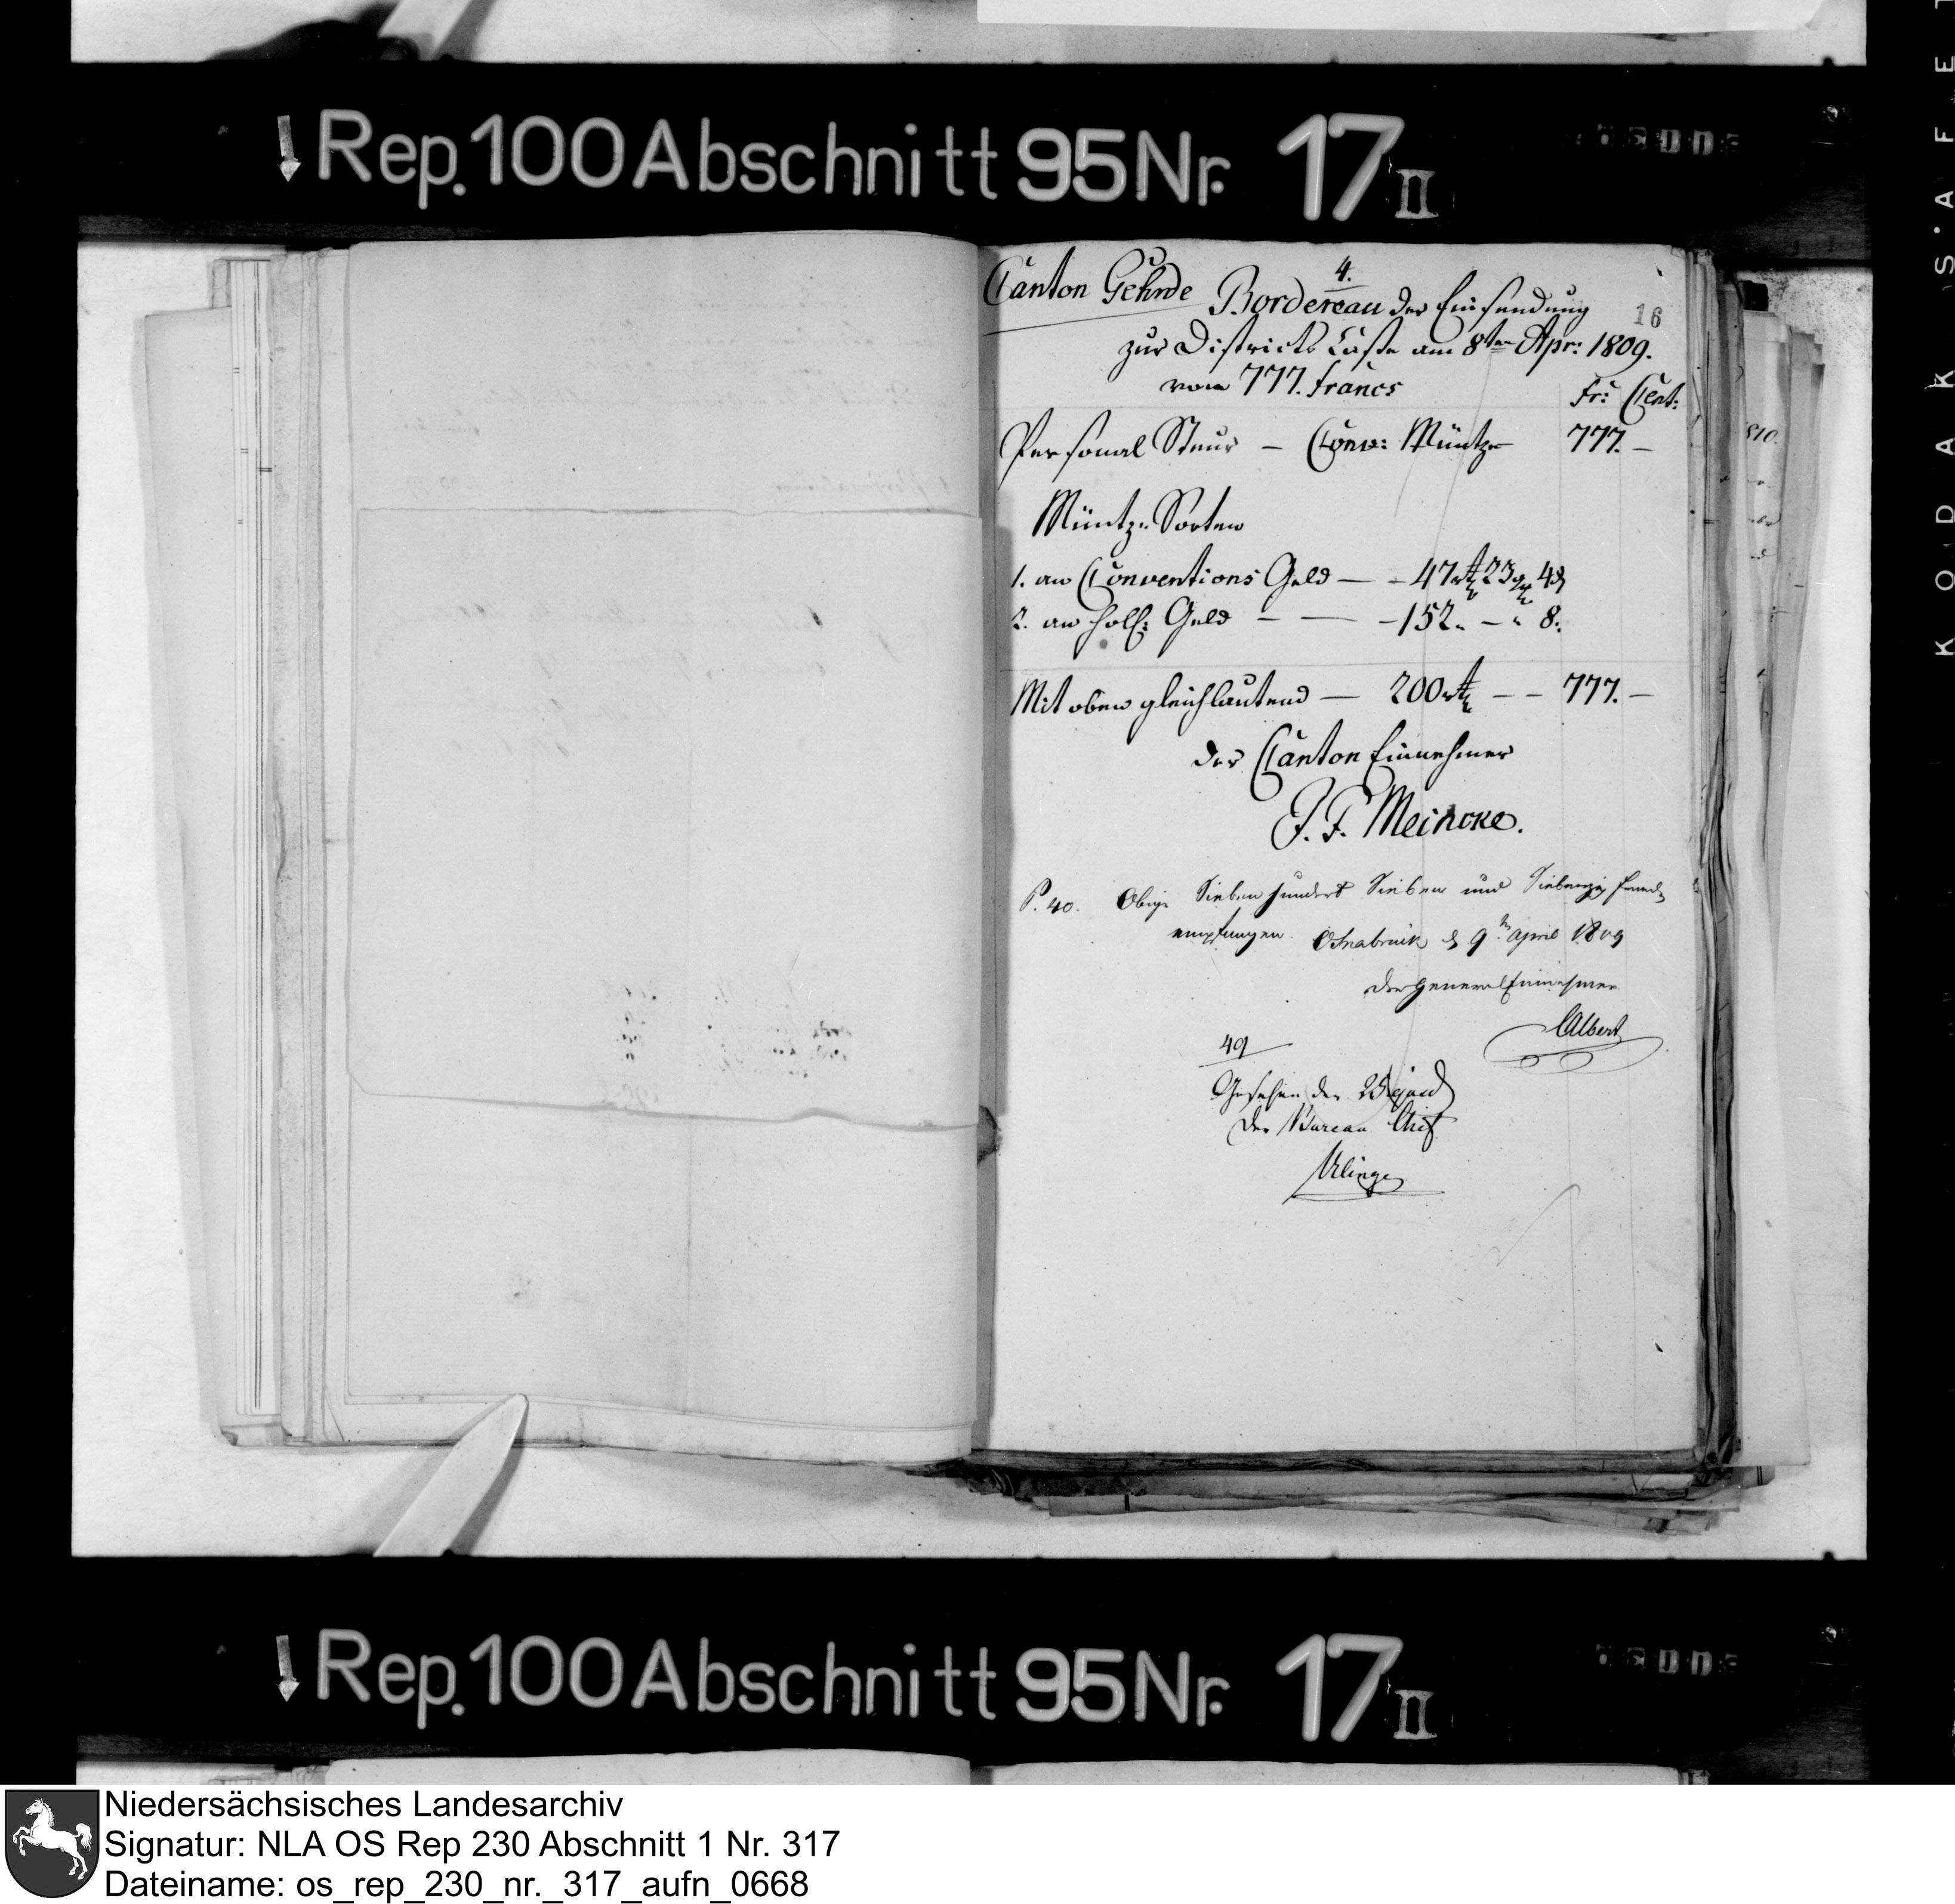 Rep. 100 Abschnitt 95 Nr. 17 II
4.
Canton Gehrde Bordereau der Einsendung
16
zur Districts Casse am 8ten Apr: 1809.
von 777. francs
Fr: Cent:
Personal Steur — Conv: Müntze 777. —
Müntz-Sorten
1. an Conventions Geld — - 47 rt 23 g 4 d
2. an holl: Geld — — - 152. - " 8.
Mit oben gleichlautend — 200 rt — — 777. —
der Canton Einnehmer
J. F. Meincke.
P. 40. Obige Sieben hundert Sieben und Siebenzig francs
empfangen. Osnabrück d 9ten April 1809
der General Einnehmer
Albert
49
Gesehen den 25
der Bureau Chef
810.
Rep. 100 Abschnitt 95 Nr. 17 II
KODAK S.AFET
Niedersächsisches Landesarchiv
Signatur: NLA OS Rep 230 Abschnitt 1 Nr. 317
Dateiname: os_rep_230_nr._317_aufn_0668